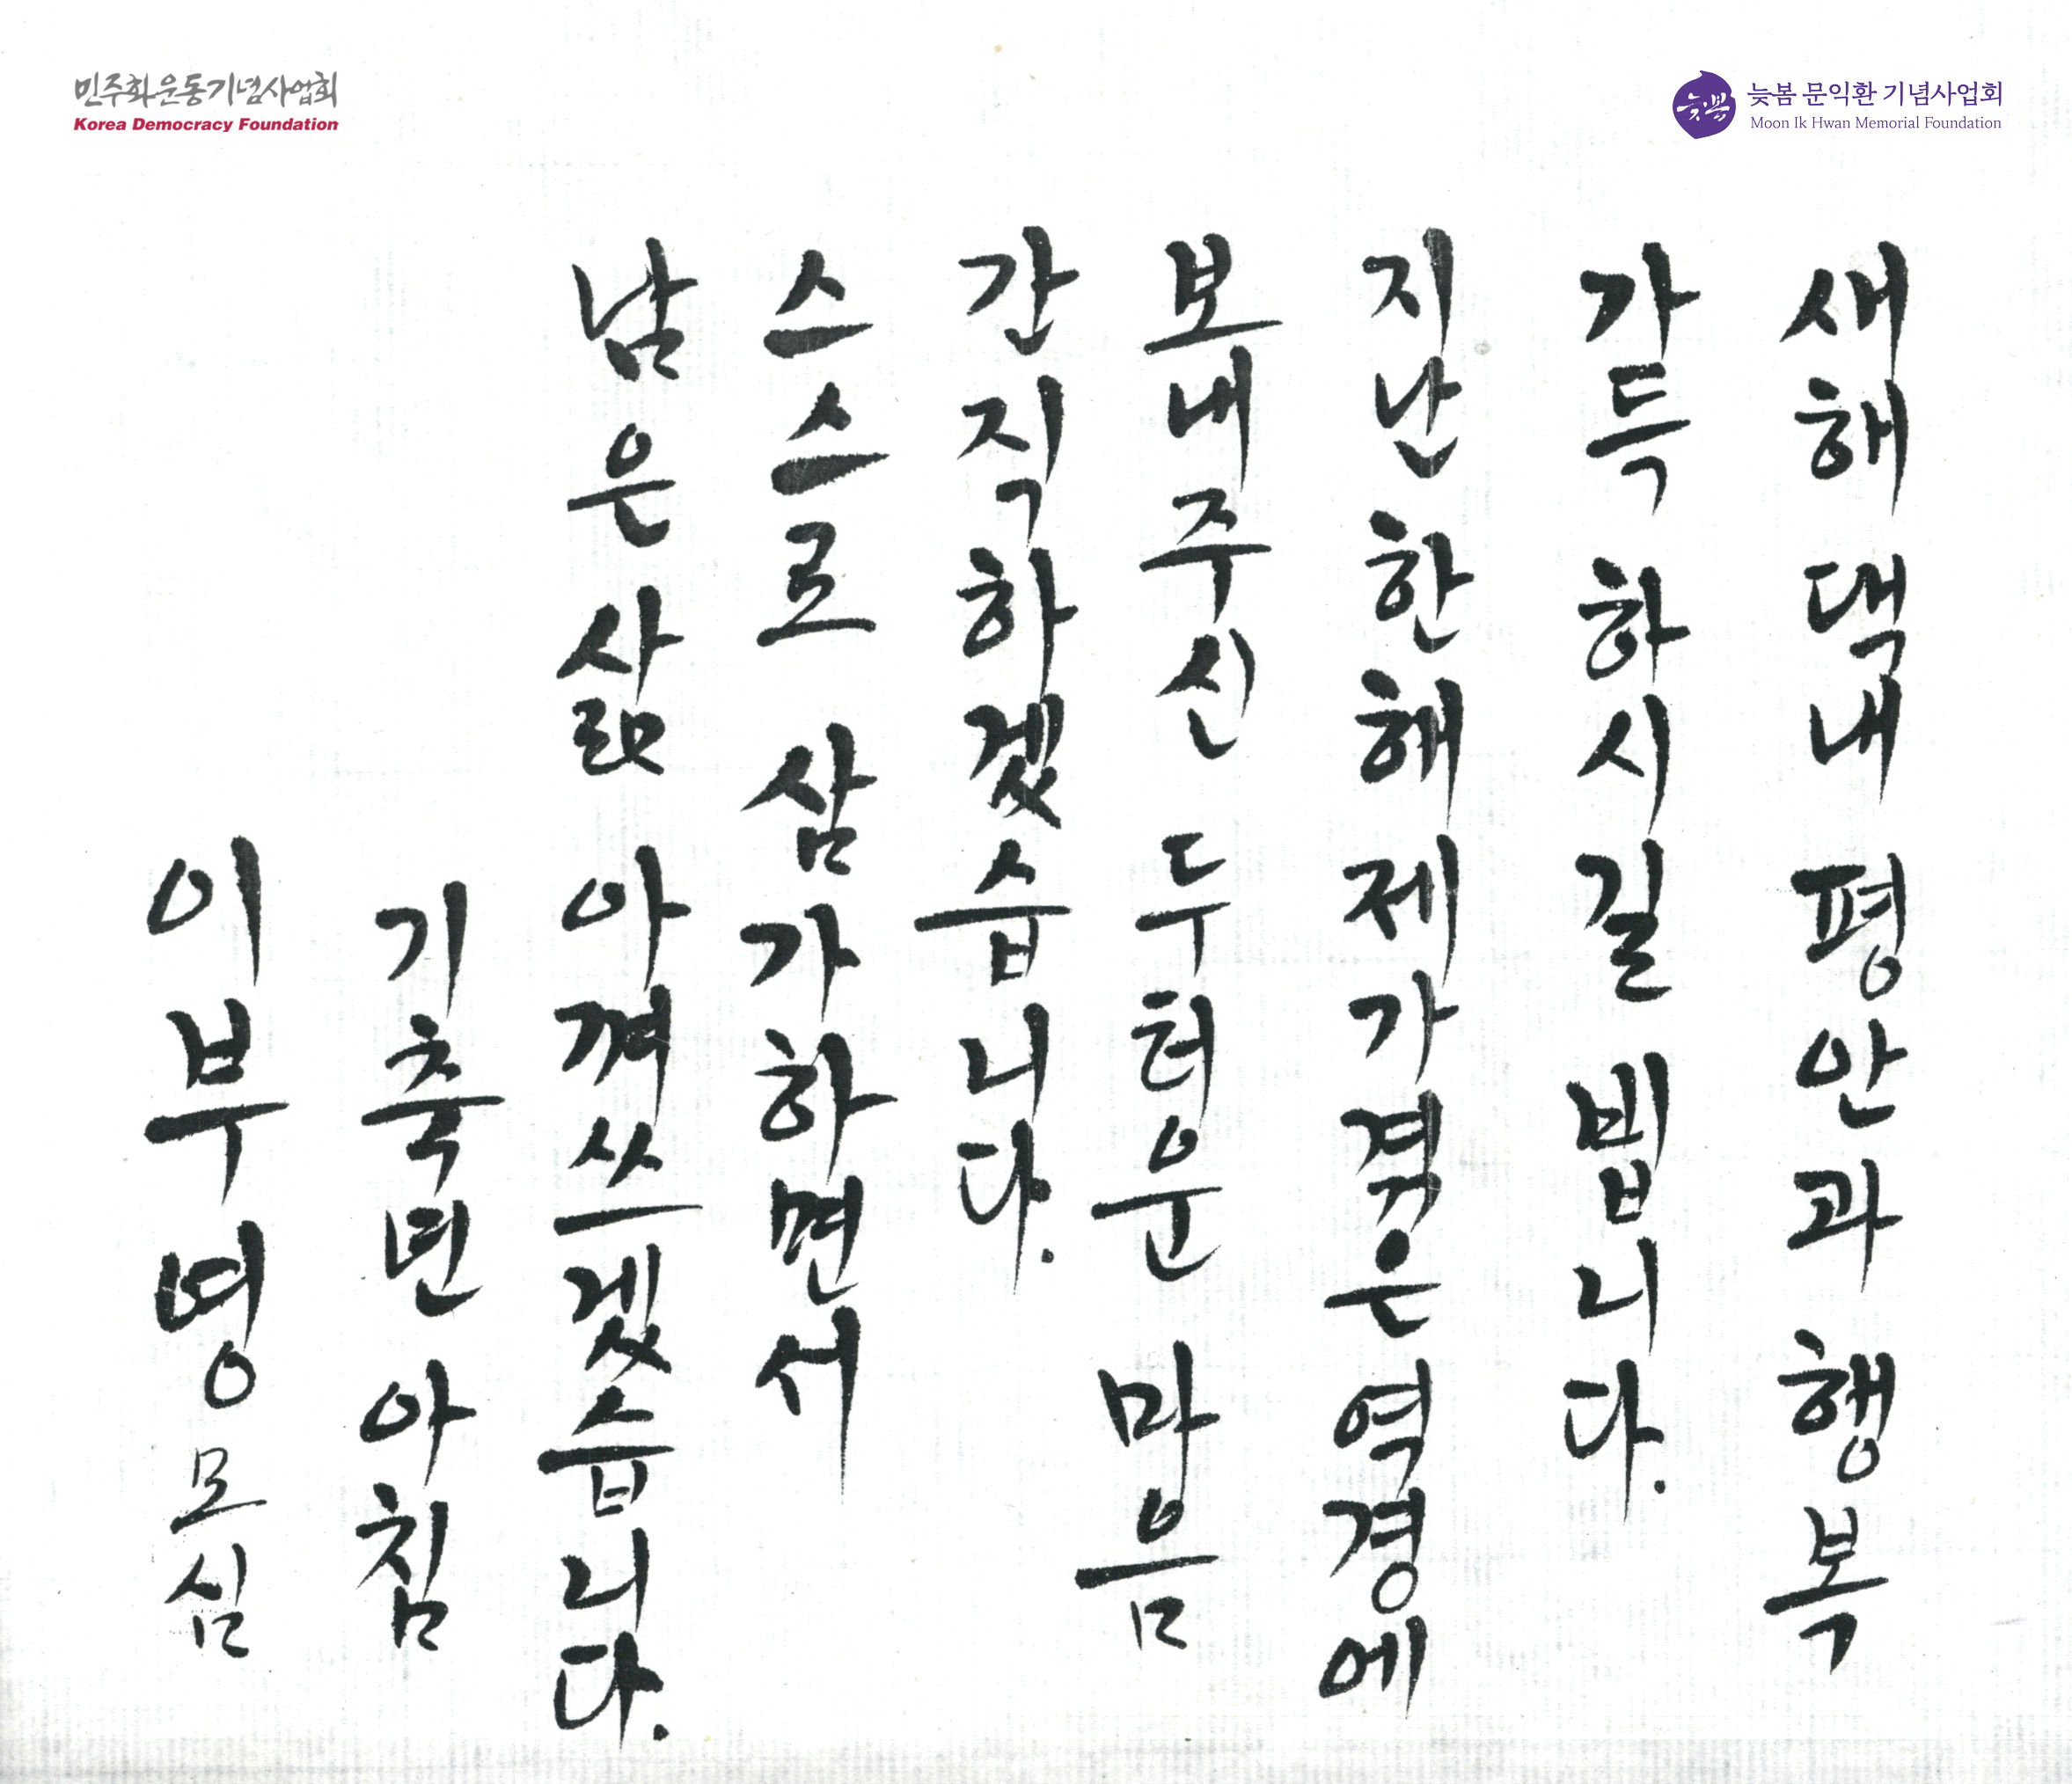 민주화운동기념사업회
Korea Democracy Foundation
늦봄
늦봄 문익환 기념사업회
Moon Ik Hwan Memorial Foundation
새해 댁내 평안과 행복
가득 하시길 빕니다.
지난 한해 제가 겪은 역경에
보내주신 두터운 마음
간직하겠습니다.
스스로 삼가하면서
남은 삶 아껴쓰겠습니다.
기축년 아침
이부영 모심